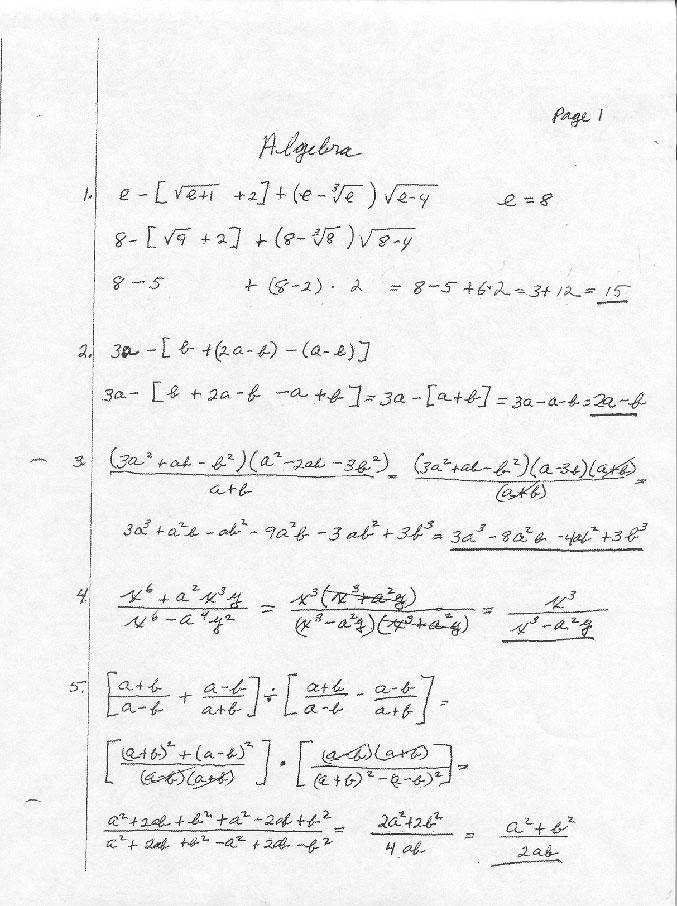 Page 1
Algebra
1. e - [√(e+1) + 2] + (e - ∛e) √(e-4)    e = 8
8 - [√9 + 2] + (8 - ∛8) √(8-4)
8 - 5 + (8-2) · 2 = 8 - 5 + 6·2 = 3 + 12 = 15
2. 3a - [b + (2a-b) - (a-b)]
3a - [b + 2a - b - a + b] = 3a - [a+b] = 3a - a - b = 2a - b
3. (3a² + ab - b²)(a² - 2ab - 3b²) / (a+b) = (3a² + ab - b²)(a-3b)(a+b) / (a+b) =
3a³ + a²b - ab² - 9a²b - 3ab² + 3b³ = 3a³ - 8a²b - 4ab² + 3b³
4. (x⁶ + a²x³y) / (x⁶ - a⁴y²) = x³(x³ + a²y) / (x³ - a²y)(x³ + a²y) = x³ / (x³ - a²y)
5. [(a+b)/(a-b) + (a-b)/(a+b)] ÷ [(a+b)/(a-b) - (a-b)/(a+b)] =
[((a+b)² + (a-b)²) / (a-b)(a+b)] · [(a-b)(a+b) / ((a+b)² - (a-b)²)] =
(a² + 2ab + b² + a² - 2ab + b²) / (a² + 2ab + b² - a² + 2ab - b²) = (2a² + 2b²) / 4ab = (a² + b²) / 2ab